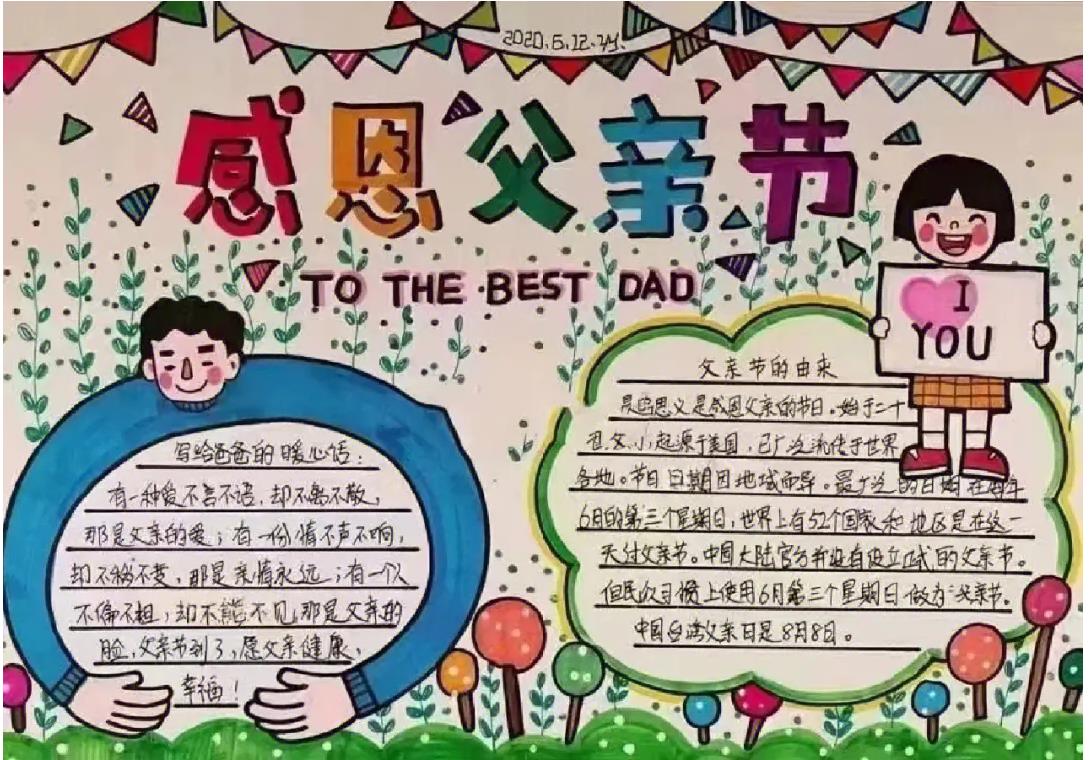 2020.6.12.
感恩父亲节
TO THE BEST DAD
I
YOU
写给爸爸的暖心话:
有一种爱不言不语,却不离不散,
那是父亲的爱;有一份情不声不响,
却不稍不变,那是亲情永远;有一个人
不偏不袒,却不能不见,那是父亲的
脸,父亲节到了,愿父亲健康,
幸福!
父亲节的由来
思义是感恩父亲的节日。始于二十
起源于美国,已广泛流传于世界
各地。节日日期因地域而异。最广泛的日期在每年
6月的第三个星期日,世界上有52个国家和地区是在这一
天过父亲节。中国大陆官方并没有设立正式的父亲节。
但民众习惯上使用6月第三个星期日做为父亲节。
中国台湾父亲日是8月8日。